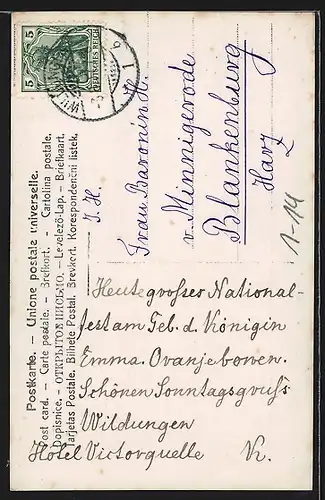 Postkarte. — Unione postale universelle.
Post card. — Carte postale. — Brefkort. — Cartolina postale.
Dopisnice. — ОТКРЫТОЕ ПИСЬМО. — Levelező-Lap. — Briefkaart.
Tarjetas Postale. Bilhete Postal. Brevkort. Korespondencni listek.
5 DEUTSCHES REICH 5
I. H.
Frau Baronin St.
v. Minnigerode
Blankenburg
Harz
1-14
Heute grosser National-
fest am Geb. d. Königin
Emma. Oranjebowen.
Schönen Sonntagsgruss
Wildungen
Hotel Victorquelle V.